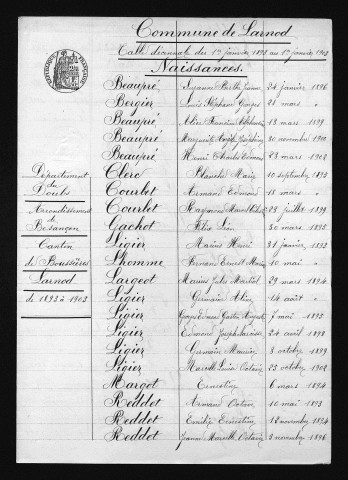 Commune de Larnod
Table décennale du 1er janvier 1893 au 1er janvier 1903
Naissances.
RÉPUBLIQUE FRANÇAISE
Département
du
Doubs
Arrondissement de
Besançon
Canton
de Boussières
Larnod
de 1893 à 1903
Beaupré Suzanne Berthe Jeanne 24 janvier 1896
Bergier Louis Stéphane Georges 21 mars "
Beaupré Alice 13 mars 1899
Beaupré Marguerite 20 novembre 1900
Beaupré Henri Charles Edmond 23 mars 1902
Clerc Blanche Marie 10 septembre 1893
Courlet Armand Edmond 13 mars "
Courlet Raymond Marcel 29 juillet 1899
Gachot Félix Léon 30 mars 1895
Ligier Marius Henri 31 janvier 1893
Lhomme Fernand Ernest Marius 10 mai "
Largeot Marius Jules Martial 29 mars 1894
Ligier Germaine Alix 14 août "
Ligier Georges Edouard Gaston August 7 mai 1895
Ligier Edmond Joseph 24 avril 1898
Ligier Germain Maurice 3 octobre 1899
Ligier Marcelle Lucie Octavie 25 octobre 1902
Margot Ernestine 6 mars 1894
Reddet Armand Octave 10 mai 1893
Reddet Emilie Ernestine 12 novembre 1894
Reddet Jeanne Marcelle Octavie 3 novembre 1896